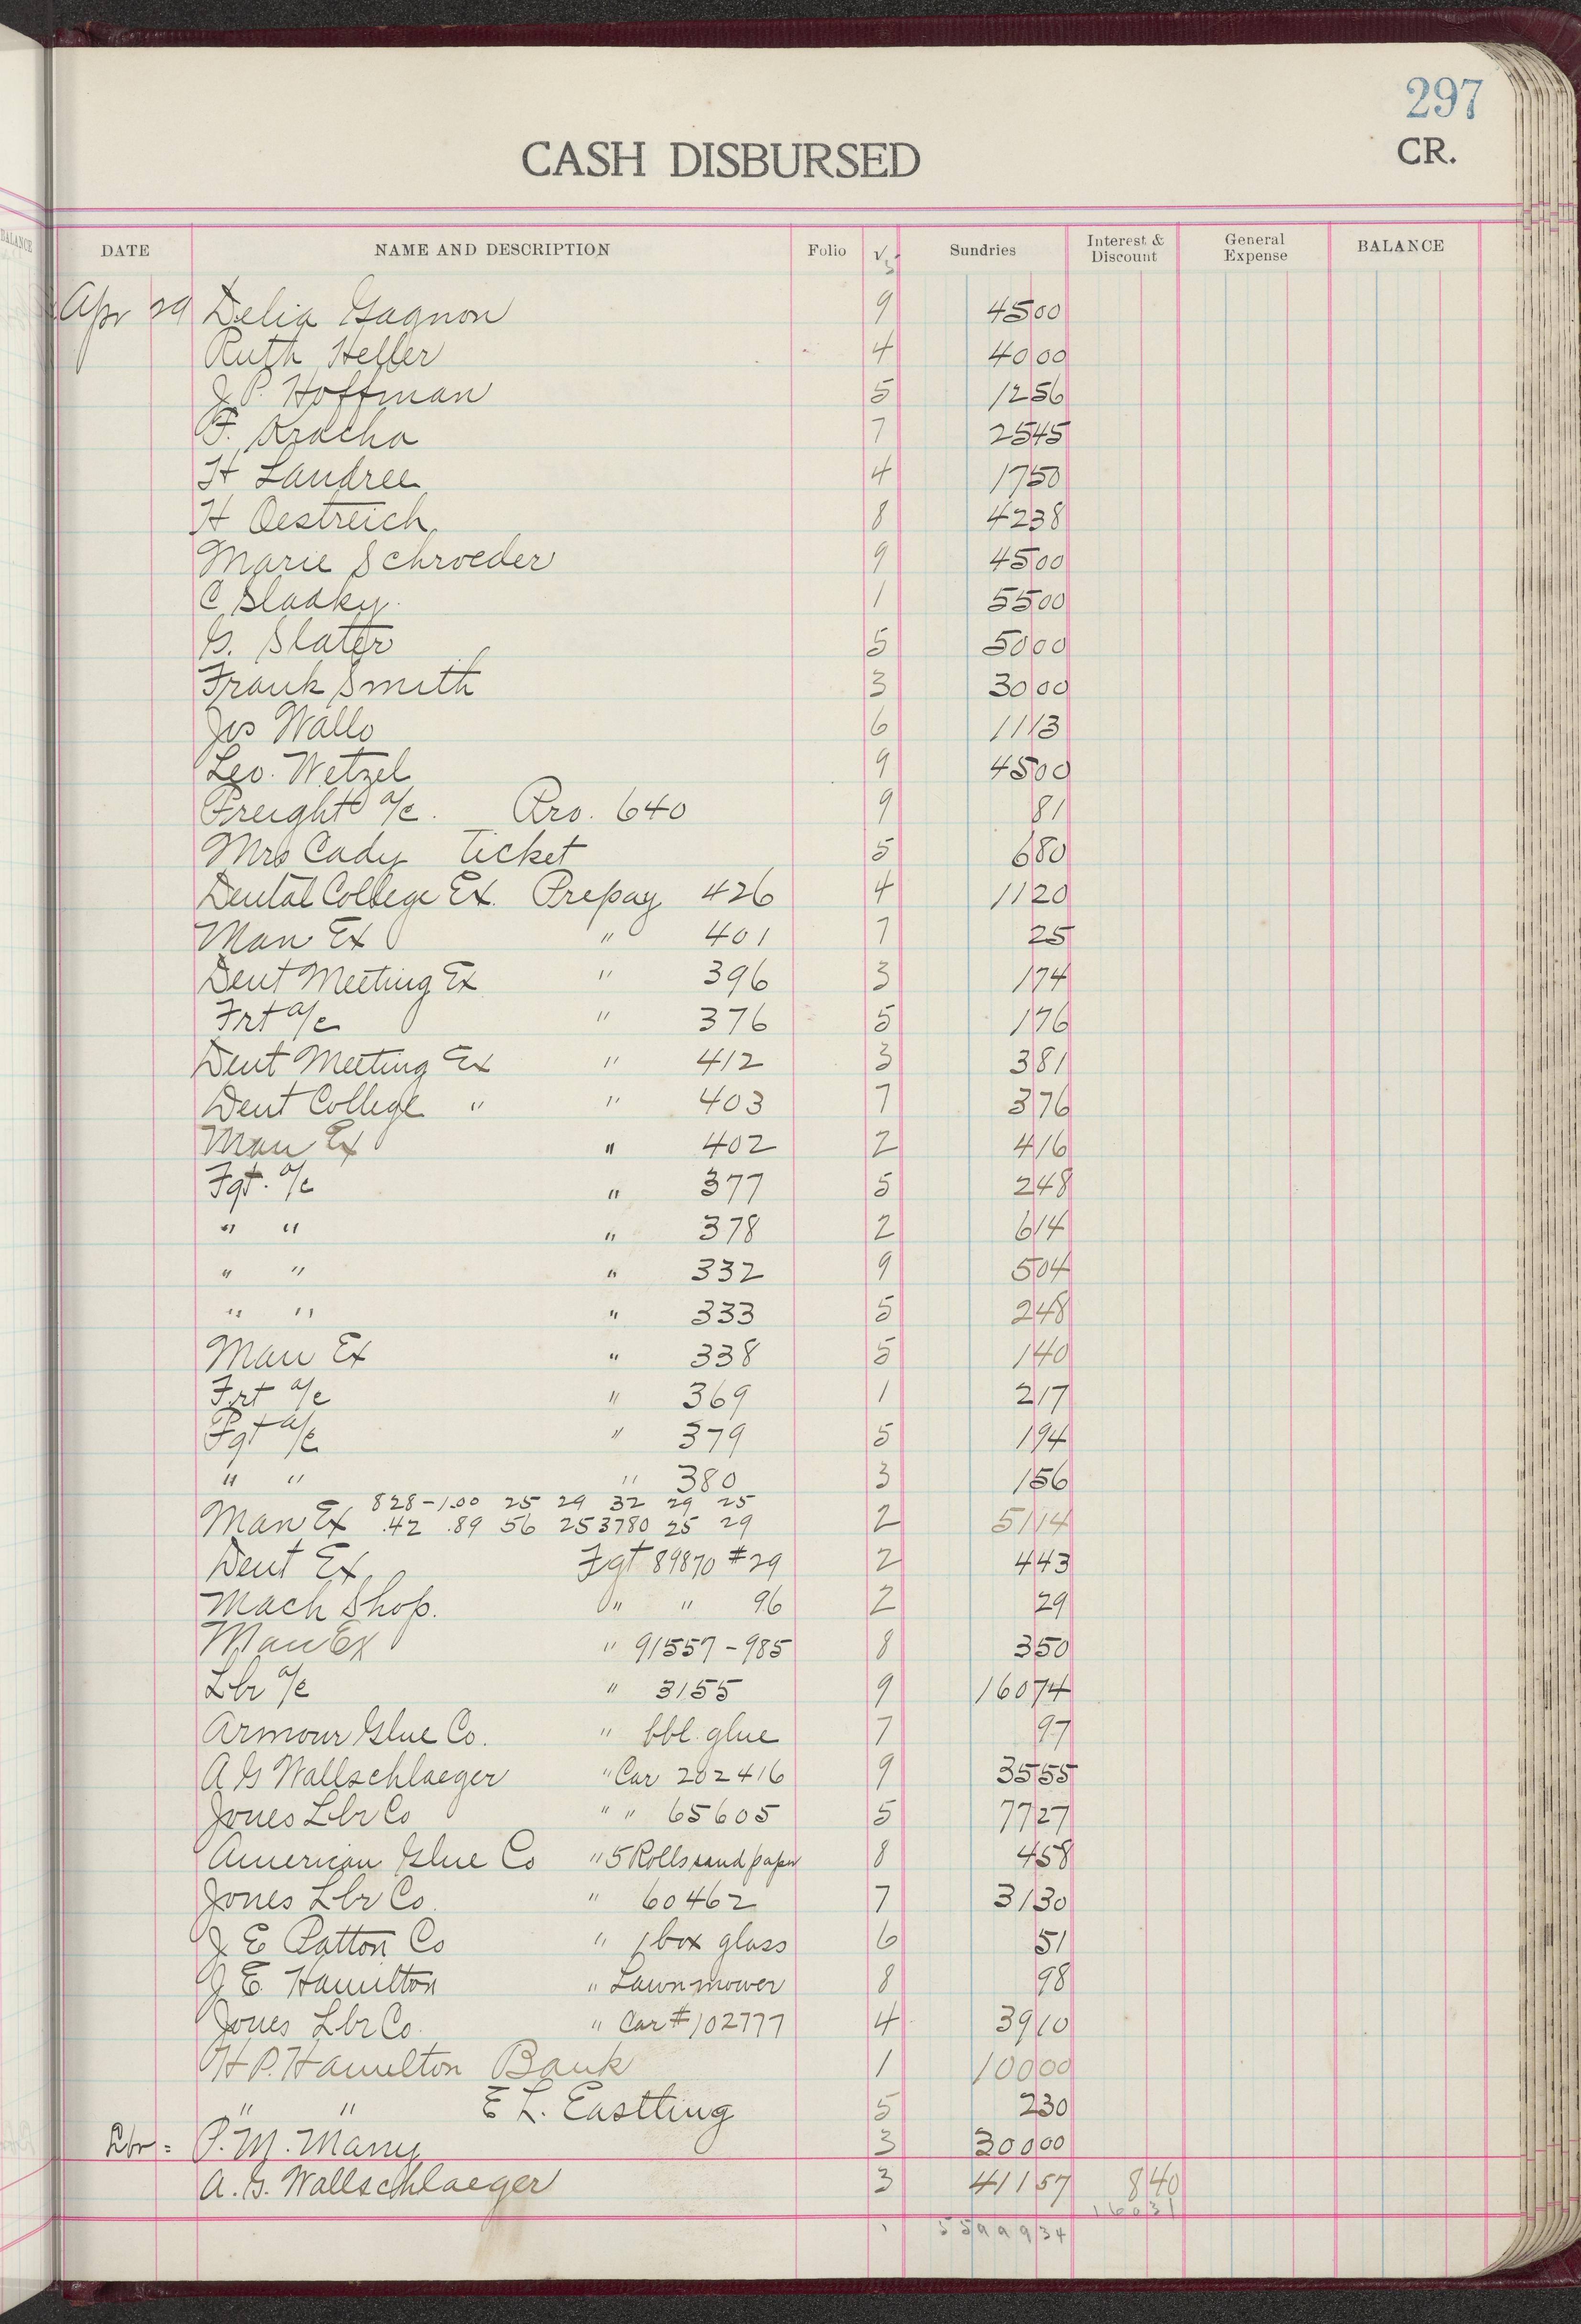 297
CASH DISBURSED
CR.
BALANCE
DATE NAME AND DESCRIPTION Folio √ Sundries Interest & Discount General Expense BALANCE
5
Apr 29 Delia Gagnon 9 45 00
Ruth Heller 4 40 00
J P. Hoffman 5 12 56
F. Kracha 7 25 45
H Landree 4 17 50
H Oestreich 8 42 38
Marie Schroeder 9 45 00
C Sladky 1 55 00
G. Slater 5 50 00
Frank Smith 3 30 00
Jos Wallo 6 11 13
Leo. Wetzel 9 45 00
Freight a/c. Pro. 640 9 81
Mrs Cady Ticket 5 6 80
Dental College Ex. Prepay 426 4 11 20
Man Ex " 401 7 25
Dent Meeting Ex " 396 3 1 74
Frt a/c " 376 5 1 76
Dent Meeting Ex " 412 3 3 81
Dent College " " 403 7 3 76
Man Ex " 402 2 4 16
Fgt. a/c " 377 5 2 48
" " " 378 2 6 14
" " " 332 9 5 04
" " " 333 5 2 48
Man Ex " 338 5 1 40
Frt a/c " 369 1 2 17
Fgt a/c " 379 5 1 94
" " " 380 3 1 56
828-1.00 25 29 32 29 25
Man Ex .42 .89 56 25 3780 25 29 2 51 14
Dent Ex. Fgt 89870 #29 2 4 43
Mach Shop. " " 96 2 29
Man Ex " 91557-985 8 3 50
Lbr a/c " 3155 9 160 74
Armour Glue Co. " bbl. glue 7 97
A G Wallschlaeger " Car 202416 9 35 55
Jones Lbr Co " " 65605 5 77 27
American Glue Co " 5 Rolls sand paper 8 4 58
Jones Lbr Co. " 60462 7 31 30
J E Patton Co " 1 box glass 6 51
J E. Hamilton " Lawn mower 8 98
Jones Lbr Co. " Car #102777 4 39 10
H P. Hamilton Bank 1 100 00
" " E L. Eastling 5 2 30
Lbr = P. M. Many 3 300 00
A. G. Wallschlaeger 3 411 57 8 40
160 31
55999 34